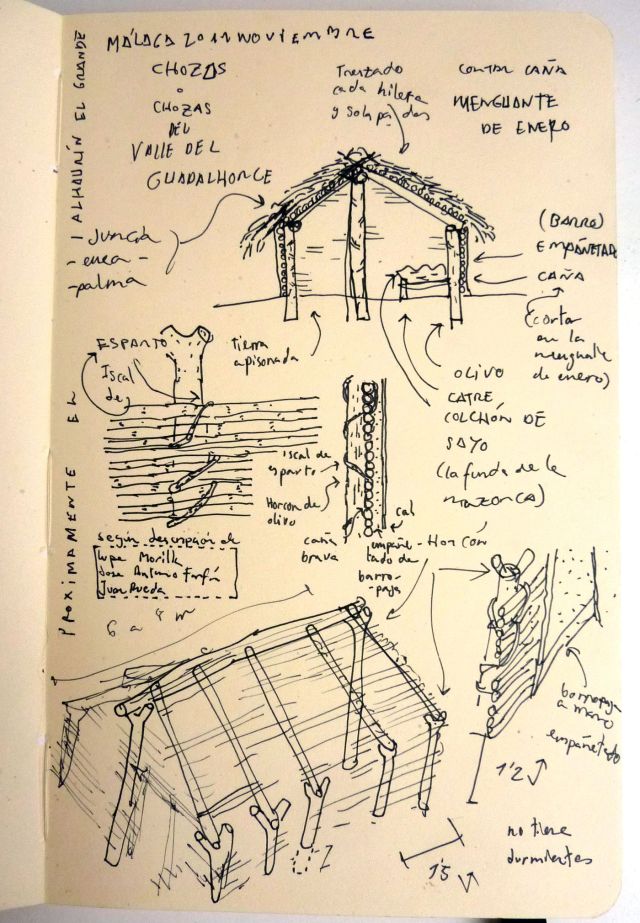 MÁLAGA 2011 NOVIEMBRE
CHOZAS
o
CHOZAS
DEL
VALLE DEL
GUADALHORCE
Trenzado
cada hilera
y solapadas
CORTAR CAÑA
MENGUANTE
DE ENERO
PROXIMAMENTE EL ALHAURÍN EL GRANDE
- Juncia
- enea -
- palma
(BARRO)
EMPAÑETADO
CAÑA
(cortar
en la
menguante
de enero)
ESPARTO
Iscal
de
tierra
apisonada
OLIVO
CATRE
COLCHÓN DE
SAYO
(la funda de la
mazorca)
Iscal de
esparto
Horcón de
olivo
caña
brava
cal
empañe-
tado de
barro-
paja
HORCÓN
según descripción de
Lupe Morilla
Jose Antonio Farfán
Juan Rueda
6 a 8 m
barropaja
a mano
empañetado
1'2
1'5
no tiene
durmientes